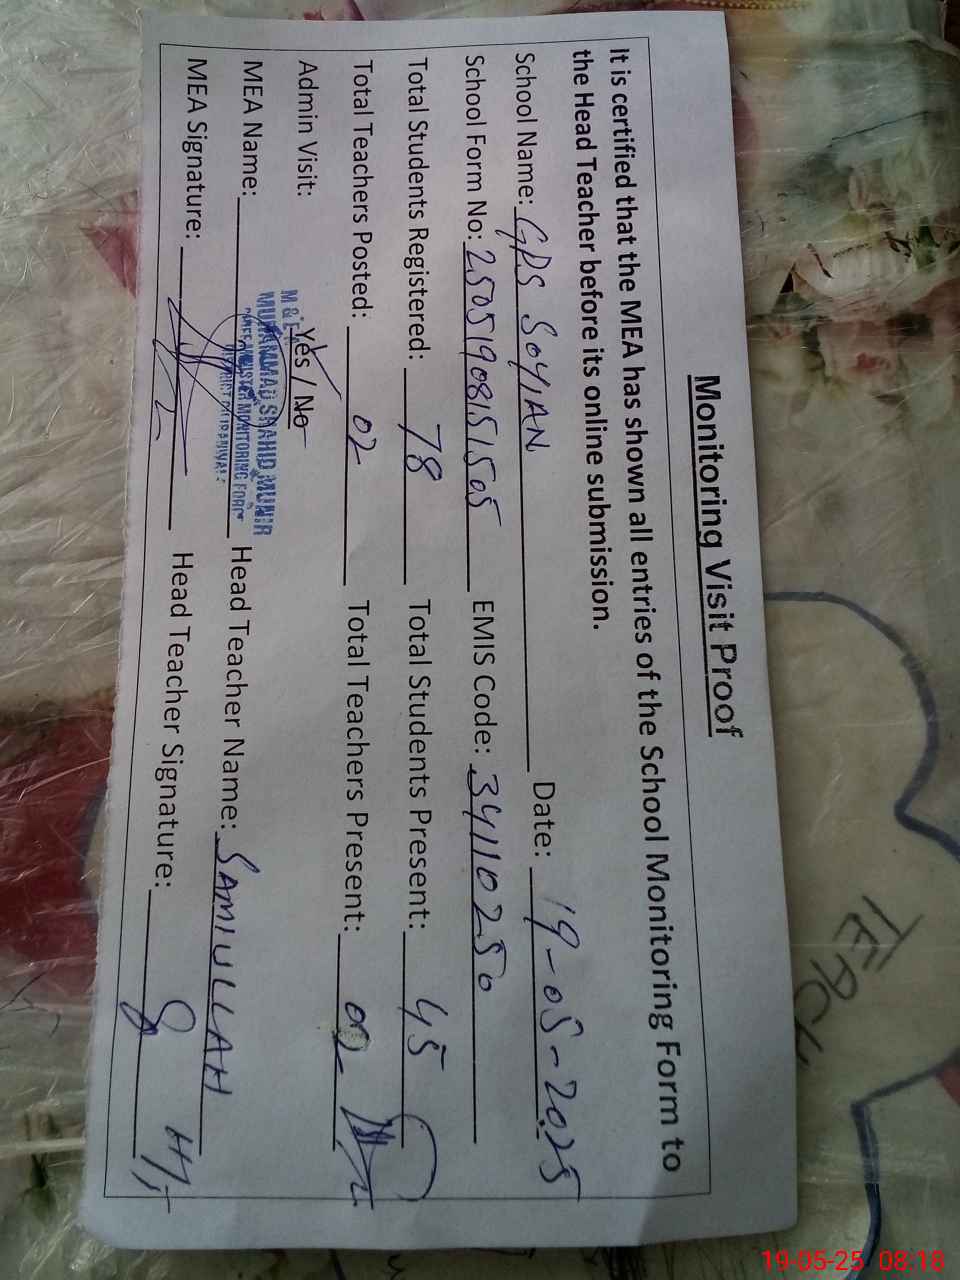 Monitoring Visit Proof
It is certified that the MEA has shown all entries of the School Monitoring Form to
the Head Teacher before its online submission.
School Name: GPS SOYIAN Date: 19-05-2025
School Form No: 25051908151505 EMIS Code: 34110250
Total Students Registered: 78 Total Students Present: 45
Total Teachers Posted: 02 Total Teachers Present: 02
Admin Visit: Yes / No
M & E
MUHAMMAD SHAHID MUNIR
MEA Name: Head Teacher Name: SAMIULLAH
MEA Signature: Head Teacher Signature:
H/T
TEACH
19-05-25 08:18